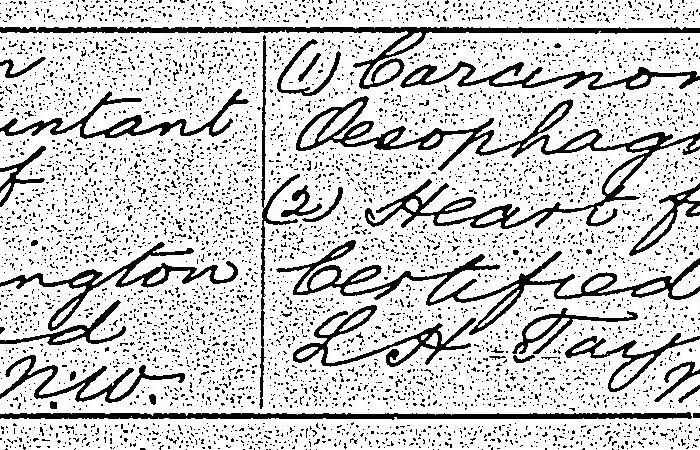 untant
of
ngton
d
N.W.
(1) Carcinom
Oesophagu
(2) Heart fa
Certified
L H Tay